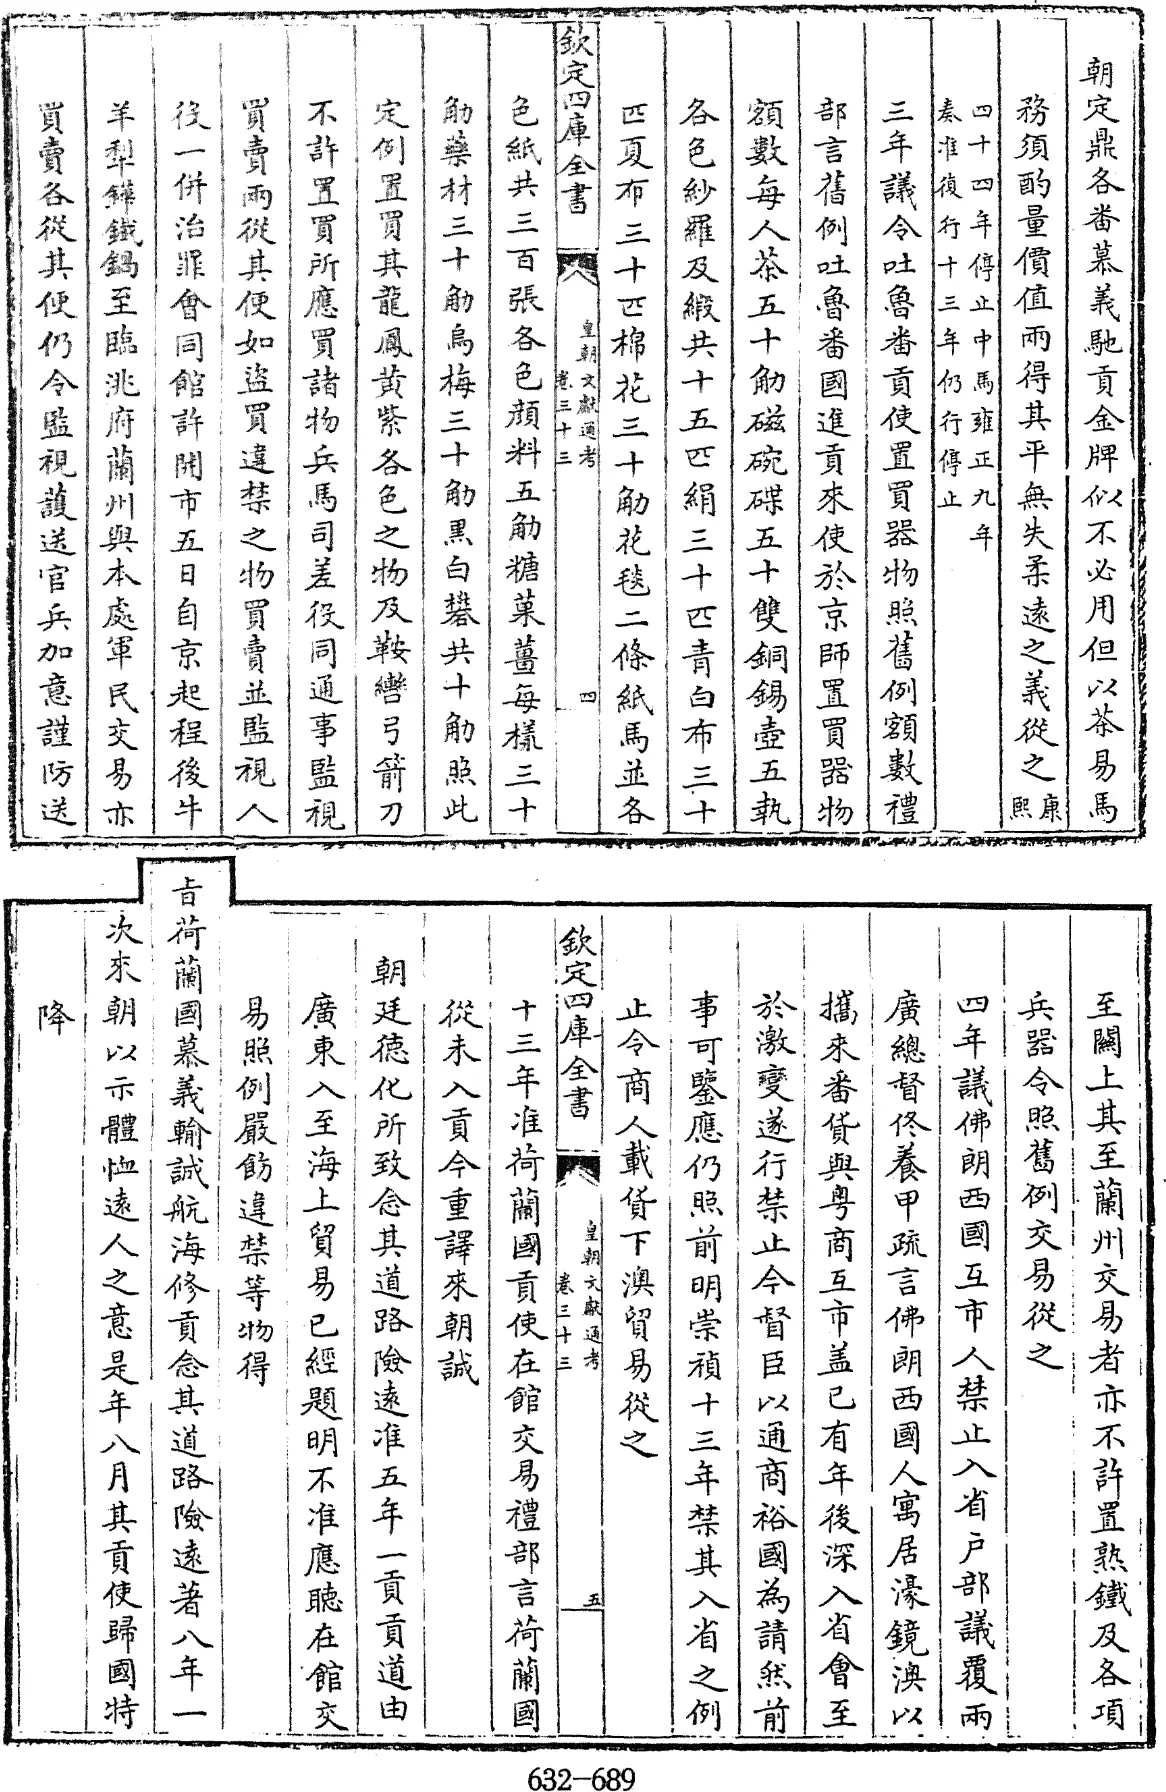 朝定鼎各番慕義馳貢金牌似不必用但以茶易馬
務須酌量價值兩得其平無失柔遠之義從之康熙
四十四年停止中馬雍正九年
奏准復行十三年仍行停止
三年議令吐魯番貢使置買器物照舊例額數禮
部言舊例吐魯番國進貢來使於京師置買器物
額數每人茶五十觔磁碗碟五十雙銅錫壺五執
各色紗羅及緞共十五匹絹三十匹青白布三十
匹夏布三十匹棉花三十觔花毯二條紙馬並各
欽定四庫全書
皇朝文獻通考
卷三十三
四
色紙共三百張各色顔料五觔糖菓薑每樣三十
觔藥材三十觔烏梅三十觔黑白礬共十觔照此
定例置買其龍鳳黃紫各色之物及鞍轡弓箭刀
不許置買所應買諸物兵馬司差役同通事監視
買賣兩從其便如盜買違禁之物買賣並監視人
役一併治罪會同館許開市五日自京起程後牛
羊犁鏵鐵鍋至臨洮府蘭州與本處軍民交易亦
買賣各從其便仍令監視護送官兵加意謹防送
至關上其至蘭州交易者亦不許置熟鐵及各項
兵器令照舊例交易從之
四年議佛朗西國互市人禁止入省戶部議覆兩
廣總督佟養甲疏言佛朗西國人寓居濠鏡澳以
攜來番貨與粤商互市盖已有年後深入省會至
於激變遂行禁止今督臣以通商裕國為請然前
事可鑒應仍照前明崇禎十三年禁其入省之例
止令商人載貨下澳貿易從之
欽定四庫全書
皇朝文獻通考
卷三十三
五
十三年准荷蘭國貢使在館交易禮部言荷蘭國
從未入貢今重譯來朝誠
朝廷德化所致念其道路險遠准五年一貢貢道由
廣東入至海上貿易已經題明不准應聽在館交
易照例嚴飭違禁等物得
旨荷蘭國慕義輸誠航海修貢念其道路險遠著八年一
次來朝以示體恤遠人之意是年八月其貢使歸國特
降
632-689